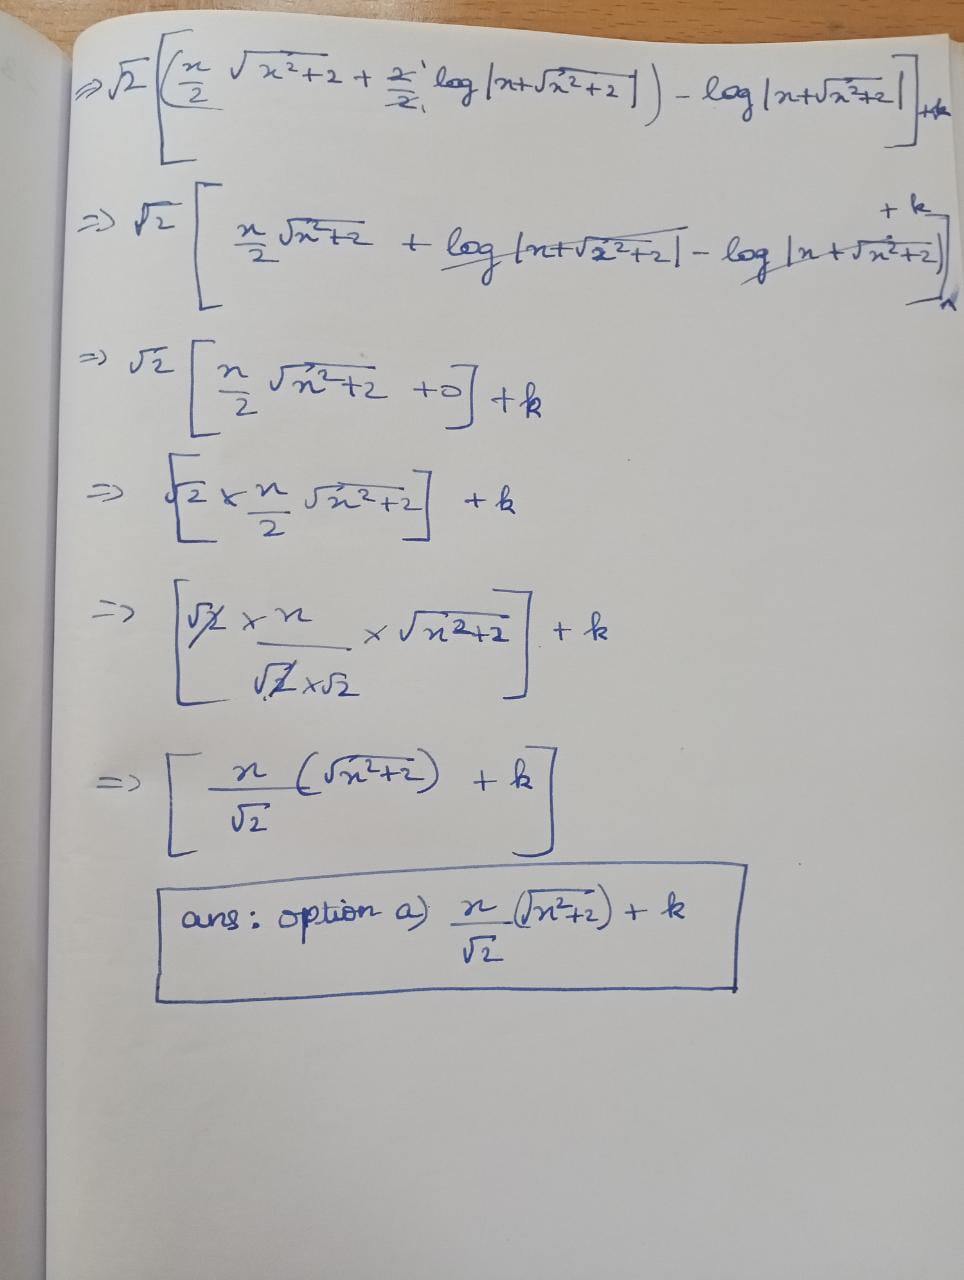 ⇒ √2 [ ( x/2 √x²+2 + 2/2 log |x+√x²+2| ) - log |x+√x²+2| ] +k
⇒ √2 [ x/2 √x²+2 + log |x+√x²+2| - log |x+√x²+2| ] + k
⇒ √2 [ x/2 √x²+2 +0 ] + k
⇒ [ √2 × x/2 √x²+2 ] + k
⇒ [ √2 × x / √2 × √2 × √x²+2 ] + k
⇒ [ x/√2 (√x²+2) + k ]
ans: option a) x/√2 (√x²+2) + k